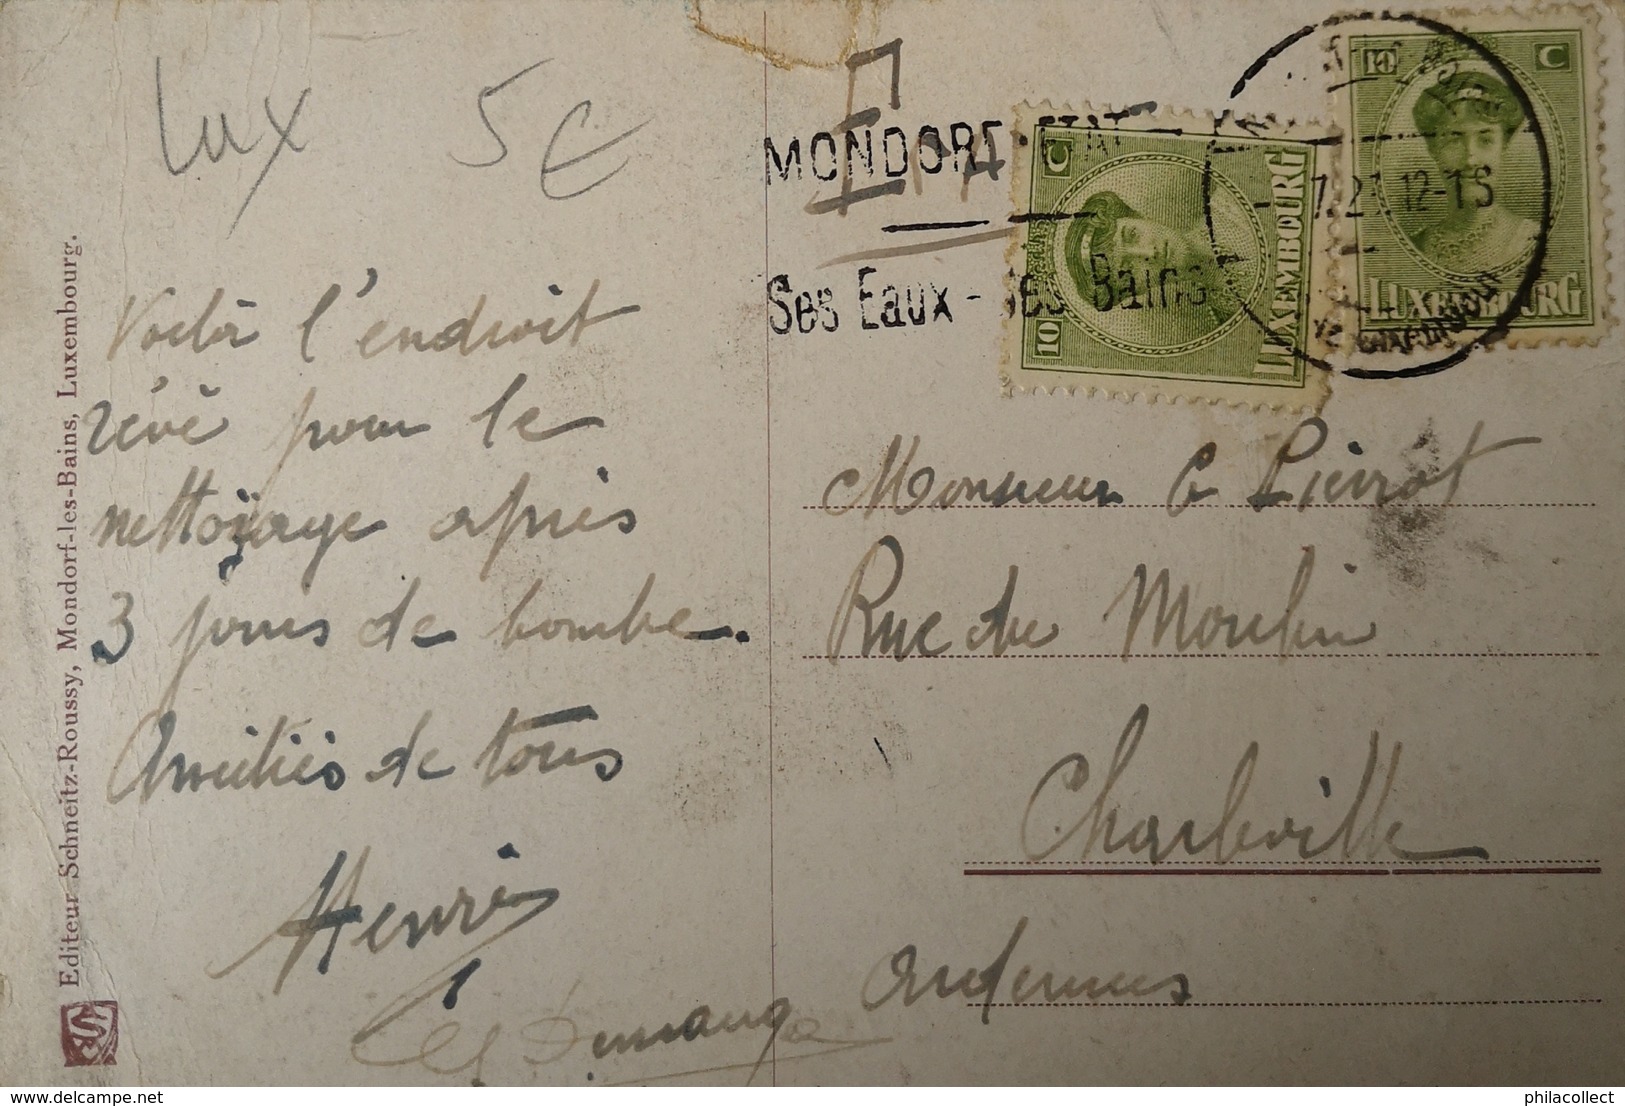 Lux 5€
MONDORF-ETAT
Ses Eaux - Ses Bains
10 C
LUXEMBOURG
10 C
LUXEMBOURG
12-1S
Voilà l'endroit
rêvé pour le
nettoyage après
3 jours de bombe.
Amitiés de tous
Henri
Monsieur G Pierrot
Rue du Moulin
Charleville
Ardennes
Editeur Schneitz-Roussy, Mondorf-les-Bains, Luxembourg.
philacollect